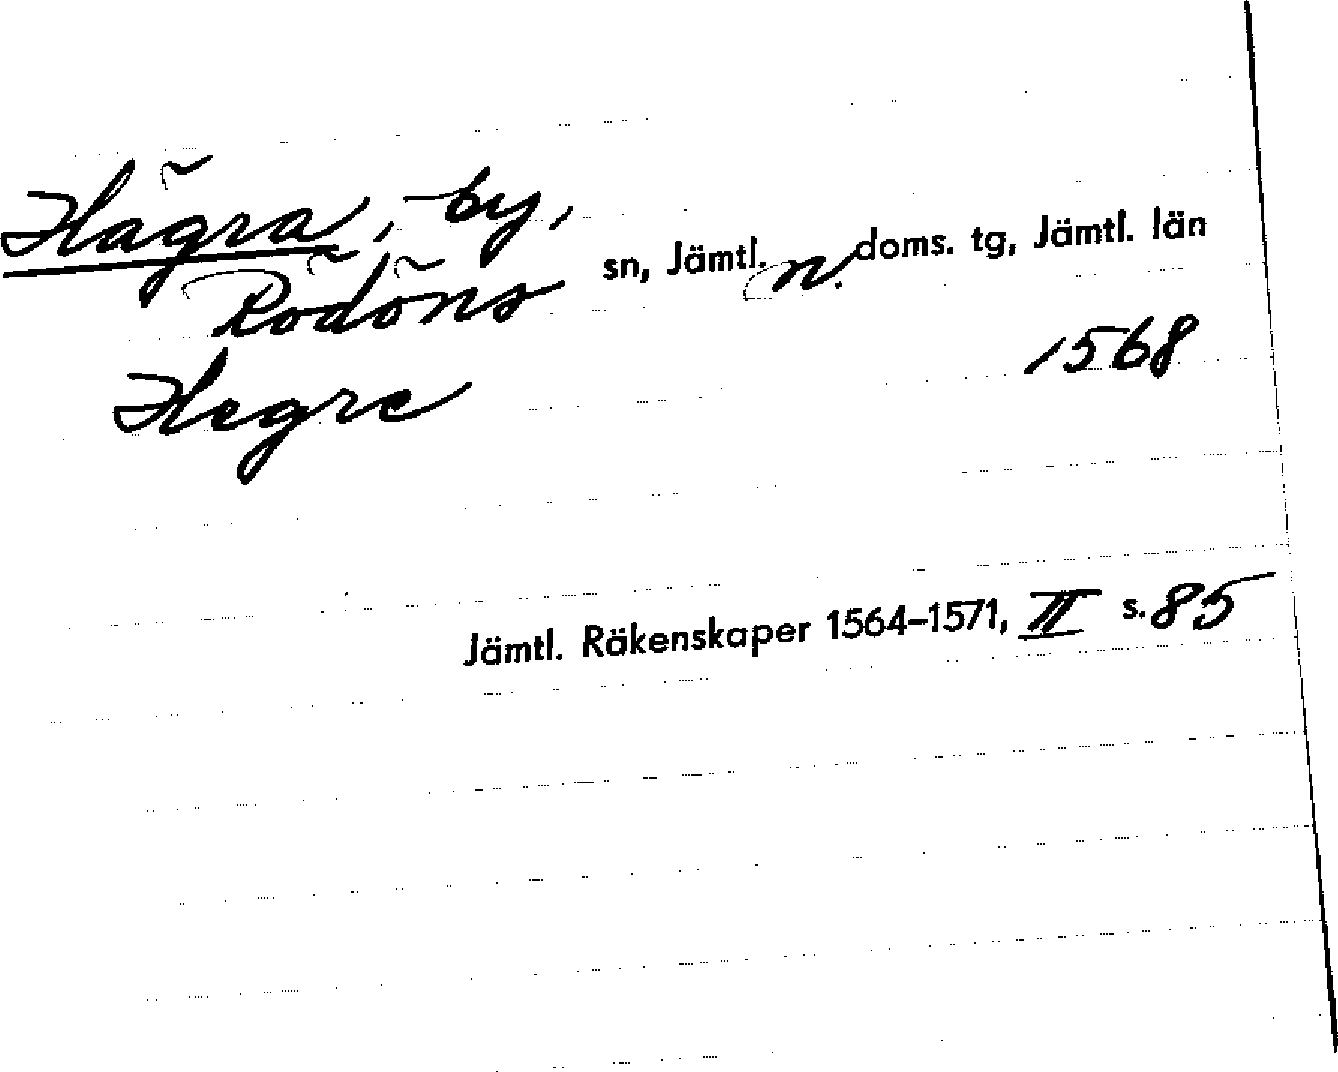 Hägra, by,
Rödöns sn, Jämtl. n. doms. tg, Jämtl. län
Hegre 1568
Jämtl. Räkenskaper 1564–1571, II s. 85